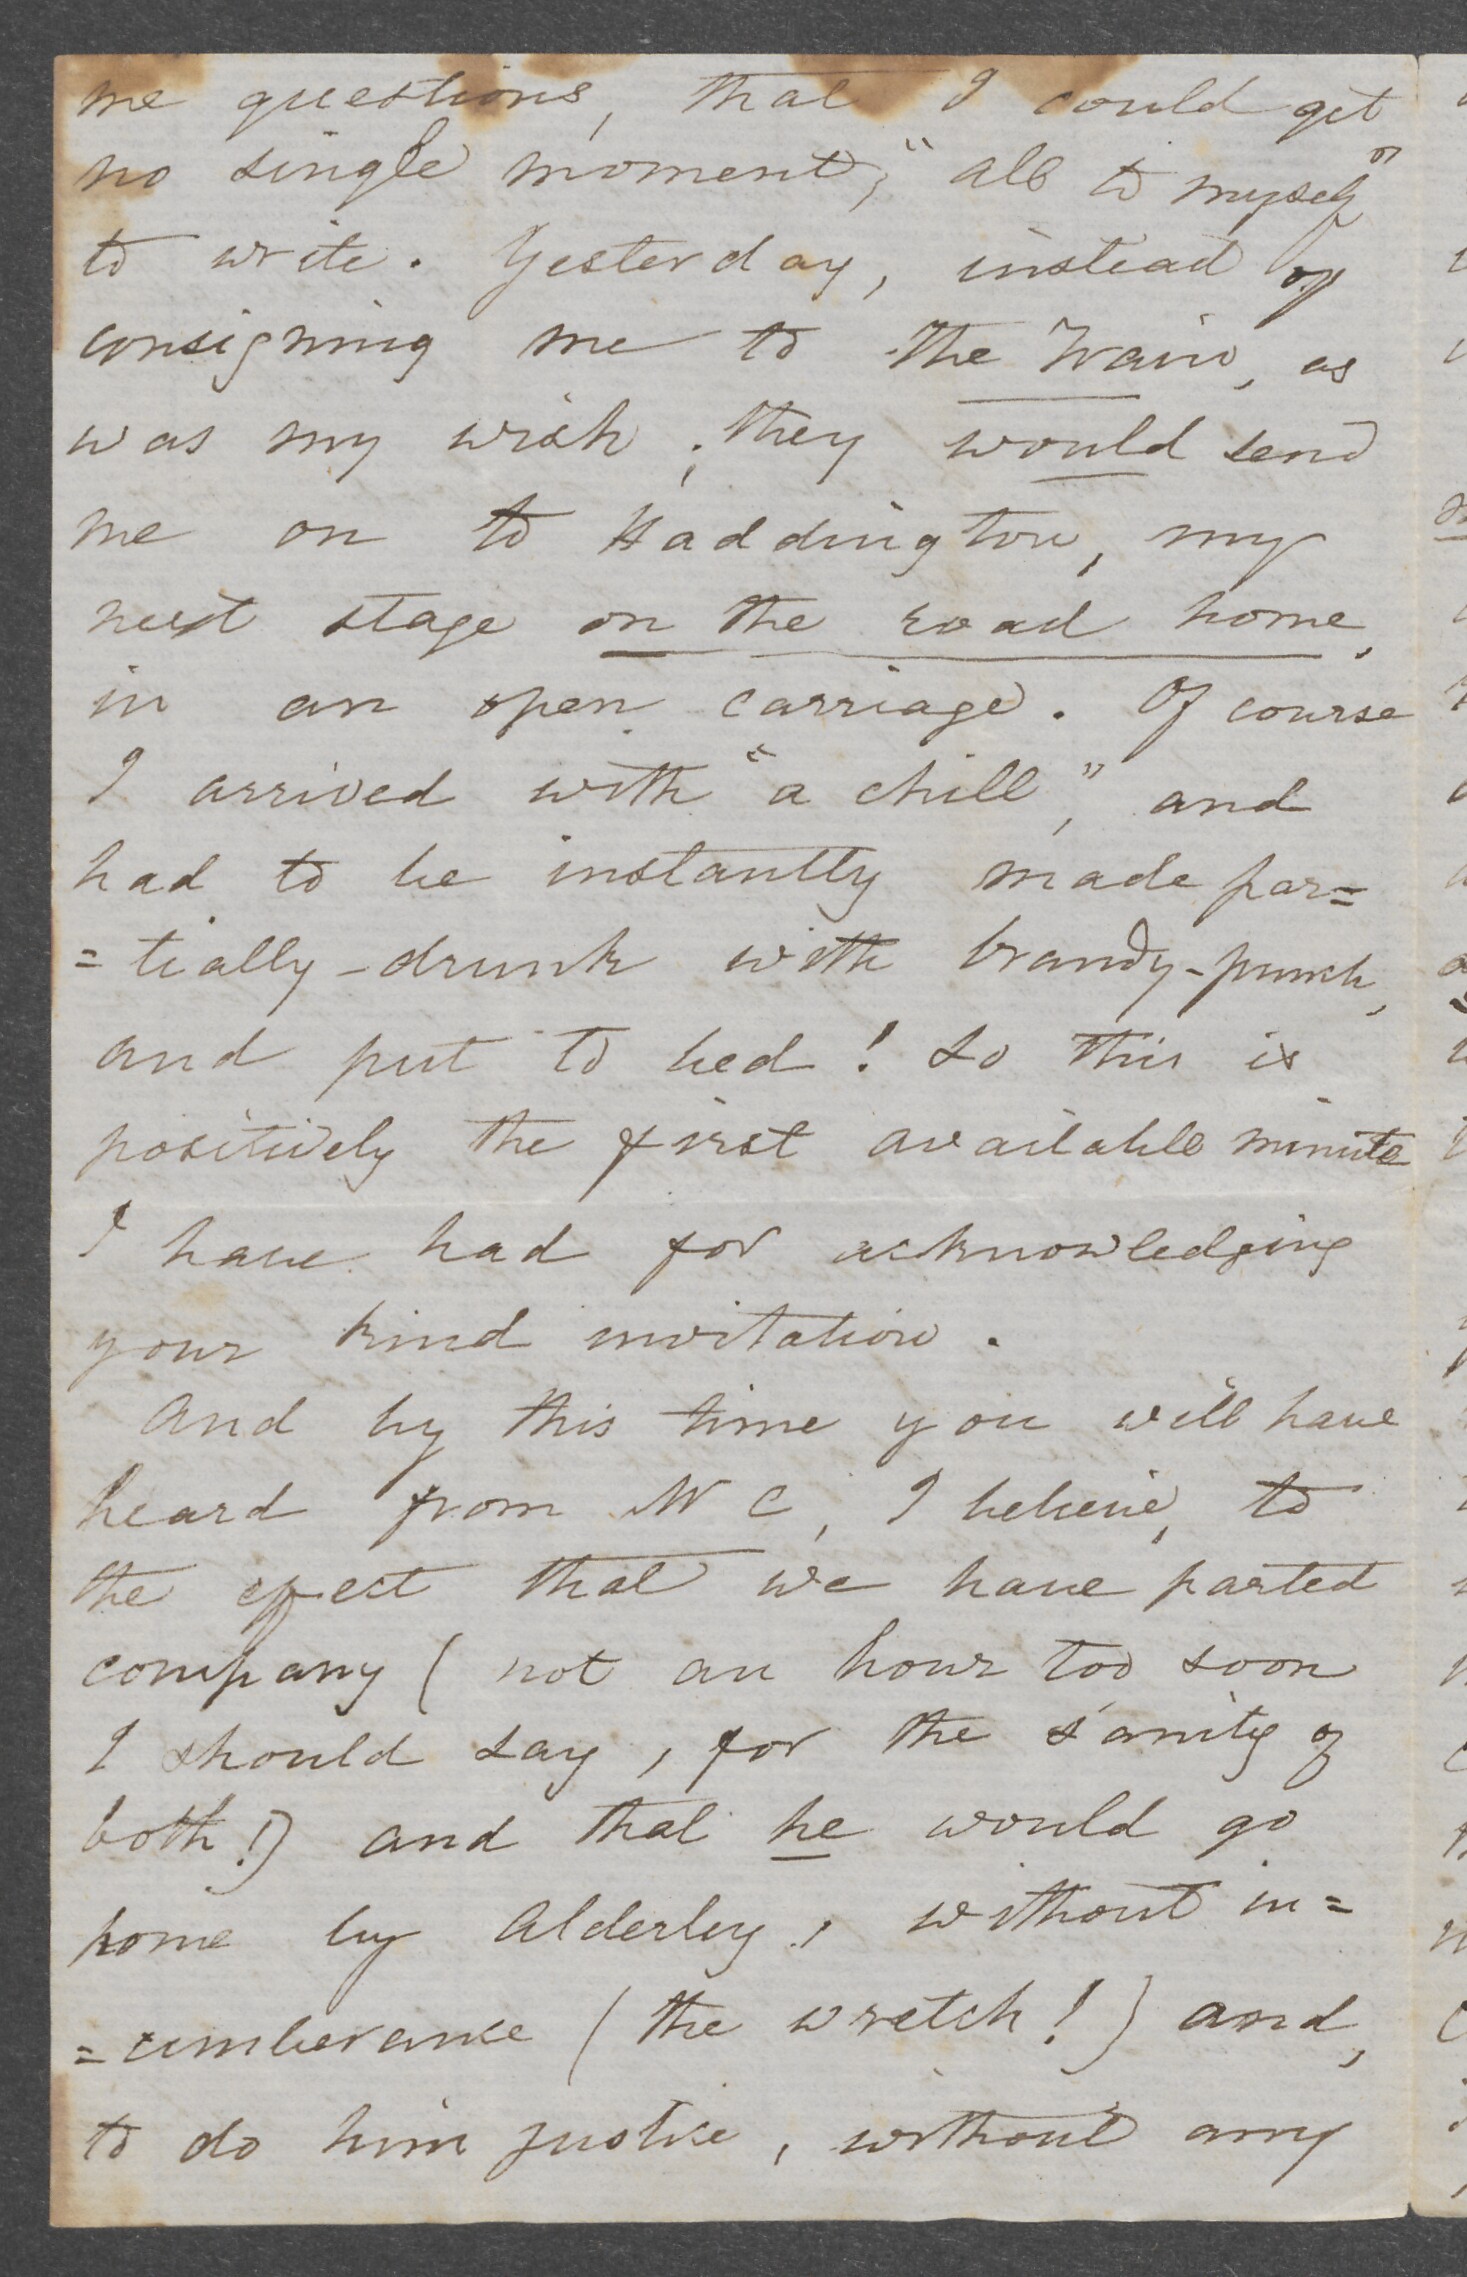 me questions, that I could get
no single moment, "all to myself"
to write. Yesterday, instead of
consigning me to the Train, as
was my wish; they would send
me on to Haddington, my
next stage on the road home,
in an open carriage. Of course
I arrived with "a chill", and
had to be instantly made par=
=tially-drunk with brandy-punch,
and put to bed! So this is
positively the first available minute
I have had for acknowledging
your kind invitation.
And by this time you will have
heard from Mr C, I believe, to
the effect that we have parted
company (not an hour too soon
I should say, for the sanity of
both!) and that he would go
home by Alderley, without in=
=cumberance (the wretch!) and,
to do him justice, without any